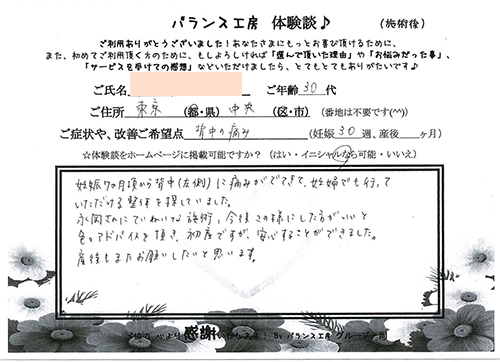 バランス工房 体験談♪ (施術後)
ご利用ありがとうございました!あなたさまにもっとお喜び頂けるために、
また、初めてご利用頂く方のために、もしよろしければ「選んで頂いた理由」や「お悩みだった事」、
「サービスを受けての感想」などいただけましたら、とてもとてもありがたいです♪
ご氏名 ご年齢 30 代
ご住所 東京 (都・県) 中央 (区・市) (番地は不要です(^^))
ご症状や、改善ご希望点 背中の痛み (妊娠 30 週、産後 ヶ月)
☆体験談をホームページに掲載可能ですか? (はい・イニシャルなら可能・いいえ)
妊娠7ヵ月頃から背中(左側)に痛みがでてきて、妊婦でも行って
いただける整体を探していました。
永岡さんにていねいな施術、今後この様にした方がいいと
色々アドバイスを頂き、初産ですが、安心することができました。
産後もまたお願いしたいと思います。
ご協力 心より 感謝 いたします! By バランス工房グループ一同